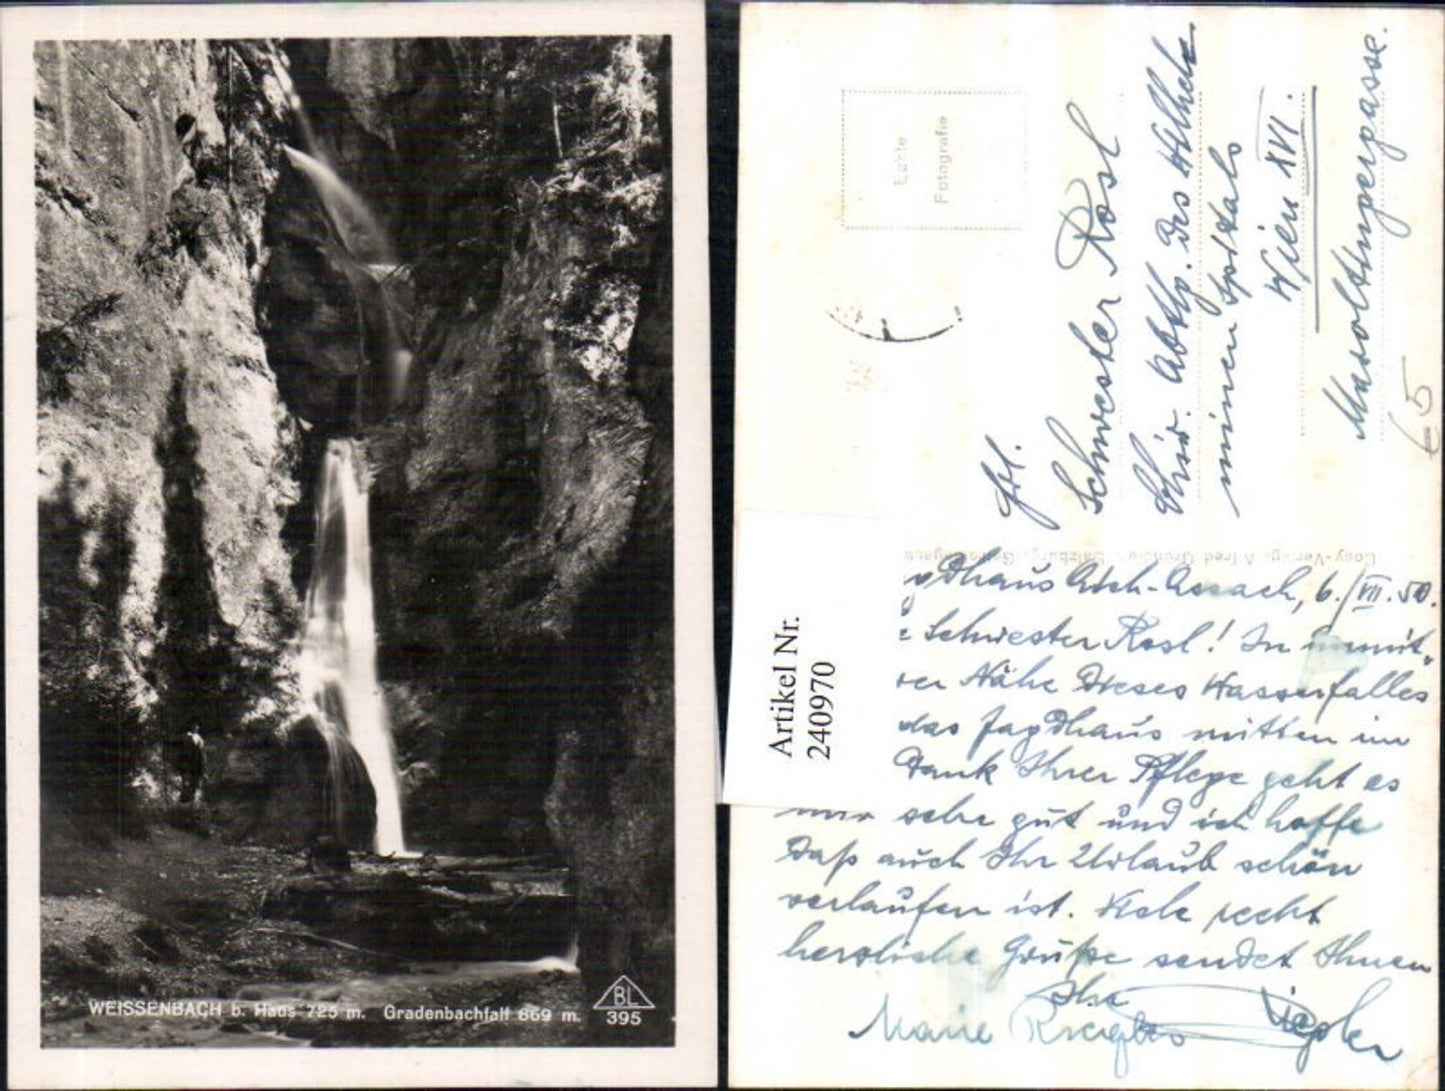 WEISSENBACH b. Haus 725 m. Gradenbachfall 869 m.
BL
395
Echte
Fotografie
Frl.
Schwester Rosl
Chir. Abtlg. des Wilhel
minen Spitals
Wien XVI.
Maroltingergasse.
€5
Cosy-Verlag, Alfred Gründler, Salzburg,
Artikel Nr.
240970
gdhaus Aich-Assach, 6./VII.50.
e Schwester Rosl! In unmit-
rer Nähe dieses Wasserfalles
das Jagdhaus mitten im
Dank Ihrer Pflege geht es
mir sehr gut und ich hoffe
daß auch Ihr Urlaub schön
verlaufen ist. Viele recht
herzliche Grüße sendet Ihnen
Ihre
Marie Ziegler